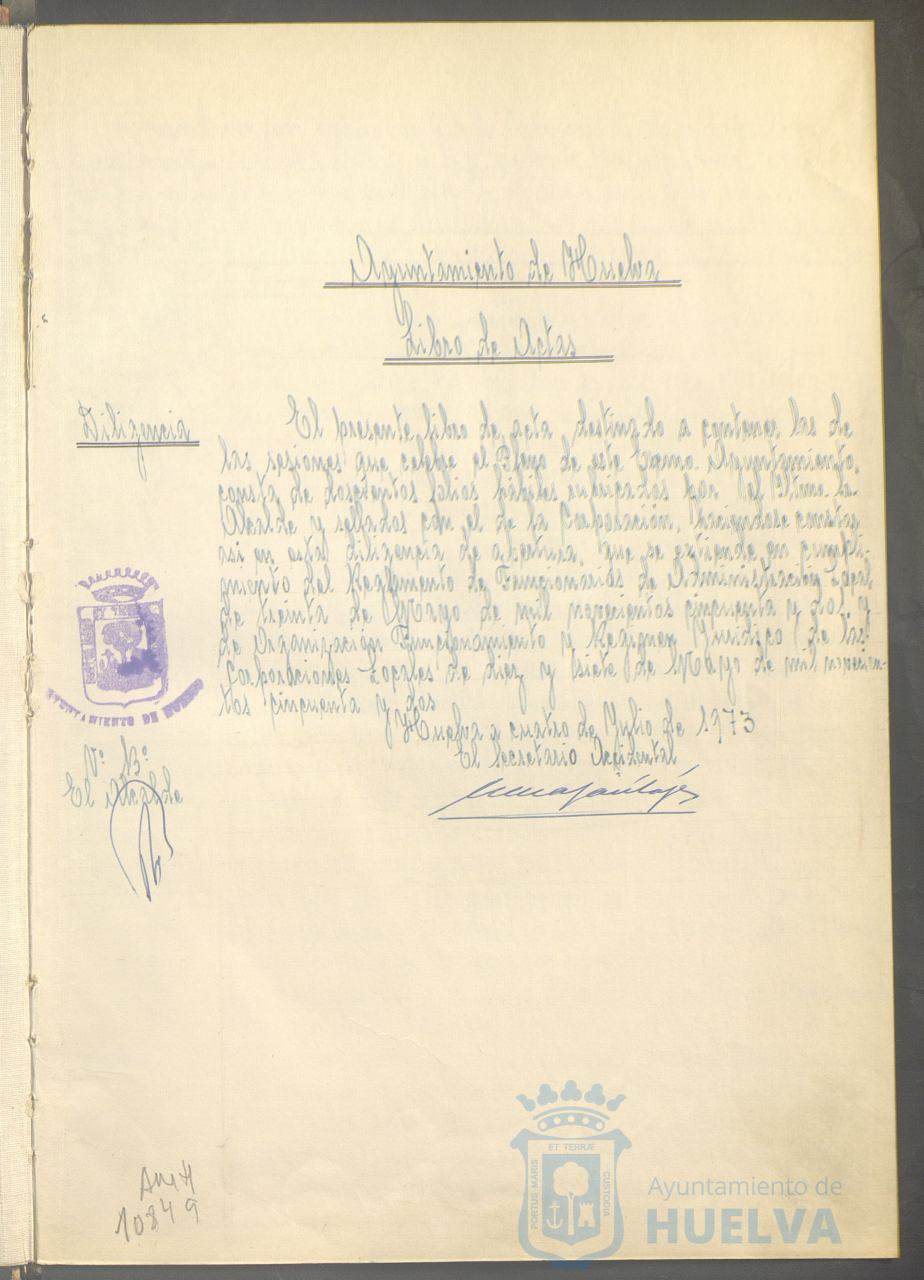 Ayuntamiento de Huelva
Libro de Actas
Diligencia
El presente libro de acta destinado a contener las de
las sesiones que celebre el Pleno de este Excmo. Ayuntamiento,
consta de doscientos folios hábiles rubricados por el Iltmo. Sr.
Alcalde y sellados con el de la Corporación, haciéndose constar
así en esta diligencia de apertura, que se extiende en cumpli-
miento del Reglamento de Funcionarios de Administración Local
de treinta de Mayo de mil novecientos cincuenta y dos y
de Organización Funcionamiento y Régimen Jurídico de las
Corporaciones Locales de diez y siete de Mayo de mil novecien-
tos cincuenta y dos
Huelva a cuatro de Julio de 1973
El Secretario Accidental
AYUNTAMIENTO DE HUELVA
Vº Bº
El Alcalde
AMH
10849
PORTUS MARIS ET TERRÆ CUSTODIA
Ayuntamiento de
HUELVA